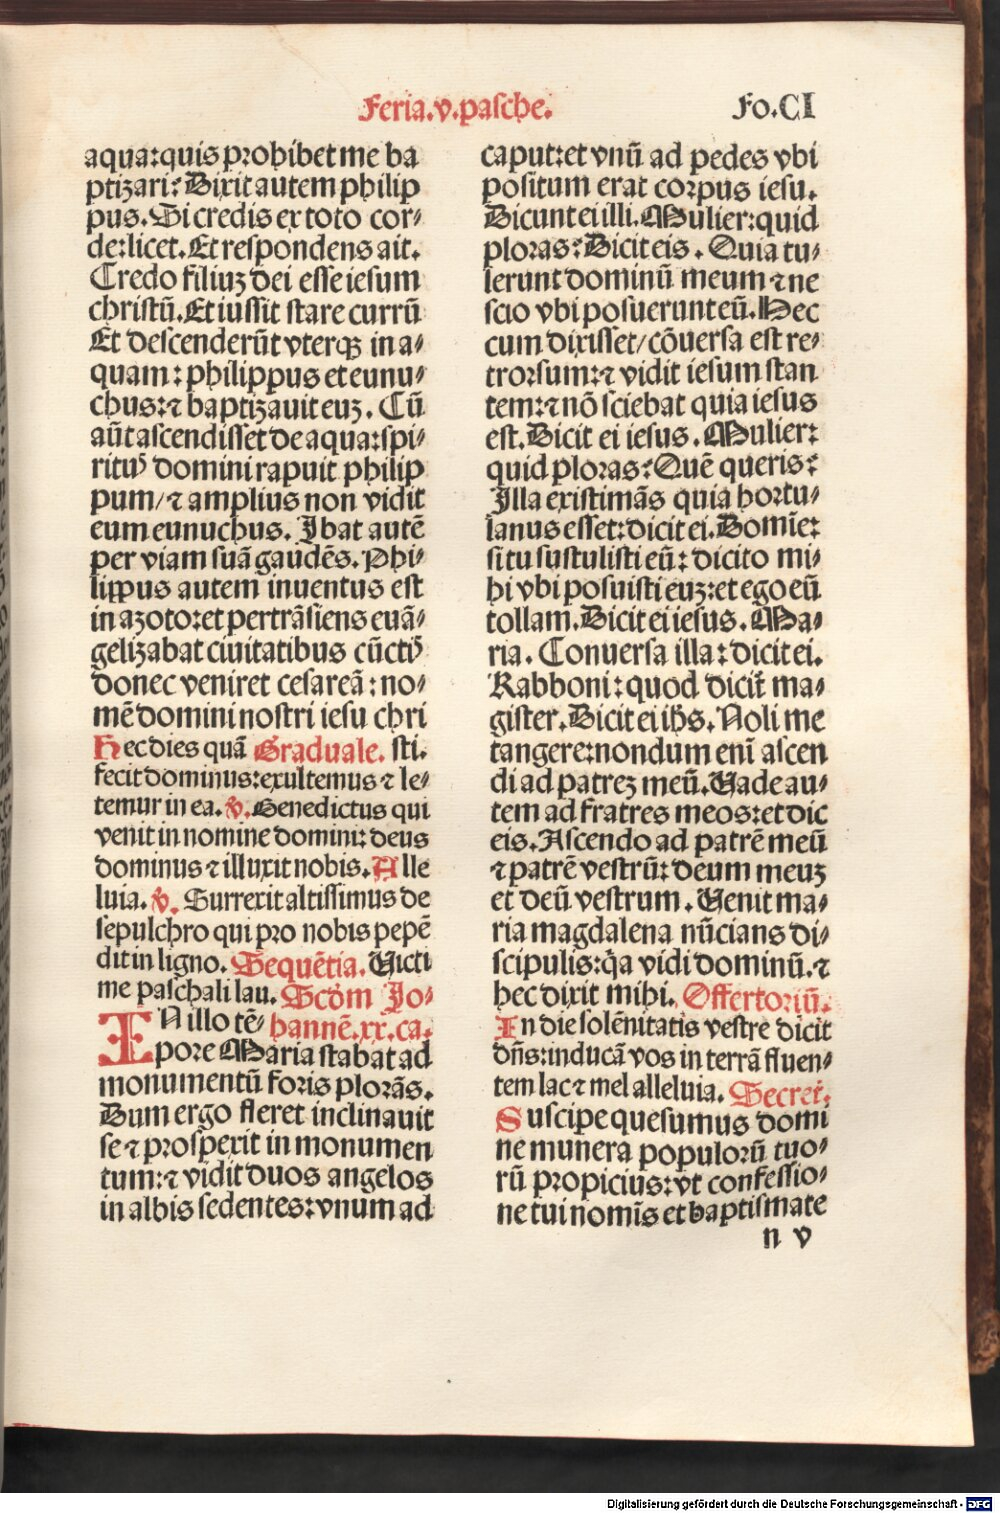 Feria.v.pasche.
Fo.CI
aqua:quis prohibet me ba
ptizari? Dixit autem philip
pus. Si credis ex toto cor⸗
de:licet. Et respondens ait.
Credo filiuʒ dei esse iesum
christū. Et iussit stare currū
Et descenderūt vterqꝫ in a⸗
quam: philippus et eunu⸗
chus:⁊ baptizauit euʒ. Cū
aūt ascendisset de aqua:spi⸗
ritꝰ domini rapuit philip
pum/⁊ amplius non vidit
eum eunuchus. Ibat autē
per viam suā gaudēs. Phi⸗
lippus autem inuentus est
in azoto:et pertrāsiens euā⸗
gelizabat ciuitatibus cūctꝰ
donec veniret cesareā: no⸗
mē domini nostri iesu chri
Hec dies quā Graduale. sti.
fecit dominus:exultemus ⁊ le⸗
temur in ea. ℣. Benedictus qui
venit in nomine domini: deus
dominus ⁊ illuxit nobis. Alle
luia. ℣. Surrexit altissimus de
sepulchro qui pro nobis pepē
dit in ligno. Sequētia. Victi
me paschali lau. Scd̄m Jo⸗
IN illo tē⸗ hannē.xx.ca.
pore Maria stabat ad
monumentū foris plorās.
Dum ergo fleret inclinauit
se ⁊ prospexit in monumen
tum:⁊ vidit duos angelos
in albis sedentes: vnum ad
caput:et vnū ad pedes vbi
positum erat corpus iesu.
Dicunt ei illi. Mulier:quid
ploras? Dicit eis. Quia tu⸗
lerunt dominū meum ⁊ ne
scio vbi posuerunt eū. Hec
cum dixisset/cōuersa est re⸗
trorsum:⁊ vidit iesum stan
tem:⁊ nō sciebat quia iesus
est. Dicit ei iesus. Mulier:
quid ploras? Quē queris?
Illa existimās quia hortu⸗
lanus esset:dicit ei. Domīe:
si tu sustulisti eū: dicito mi⸗
hi vbi posuisti euʒ:et ego eū
tollam. Dicit ei iesus. Ma⸗
ria. Conuersa illa: dicit ei.
Rabboni: quod dicit̄ ma⸗
gister. Dicit ei ihs. Noli me
tangere:nondum enī ascen
di ad patreʒ meū. Vade au⸗
tem ad fratres meos:et dic
eis. Ascendo ad patrē meū
⁊ patrē vestrū: deum meuʒ
et deū vestrum. Uenit ma⸗
ria magdalena nūcians di⸗
scipulis:q̄a vidi dominū.⁊
hec dixit mihi. Offertoriū.
In die solēnitatis vestre dicit
dn̄s:inducā vos in terrā fluen⸗
tem lac ⁊ mel alleluia. Secret̄.
Suscipe quesumus domi
ne munera populorū tuo⸗
rū propicius: vt confessio⸗
ne tui nomīs et baptismate
n v
Digitalisierung gefördert durch die Deutsche Forschungsgemeinschaft - DFG